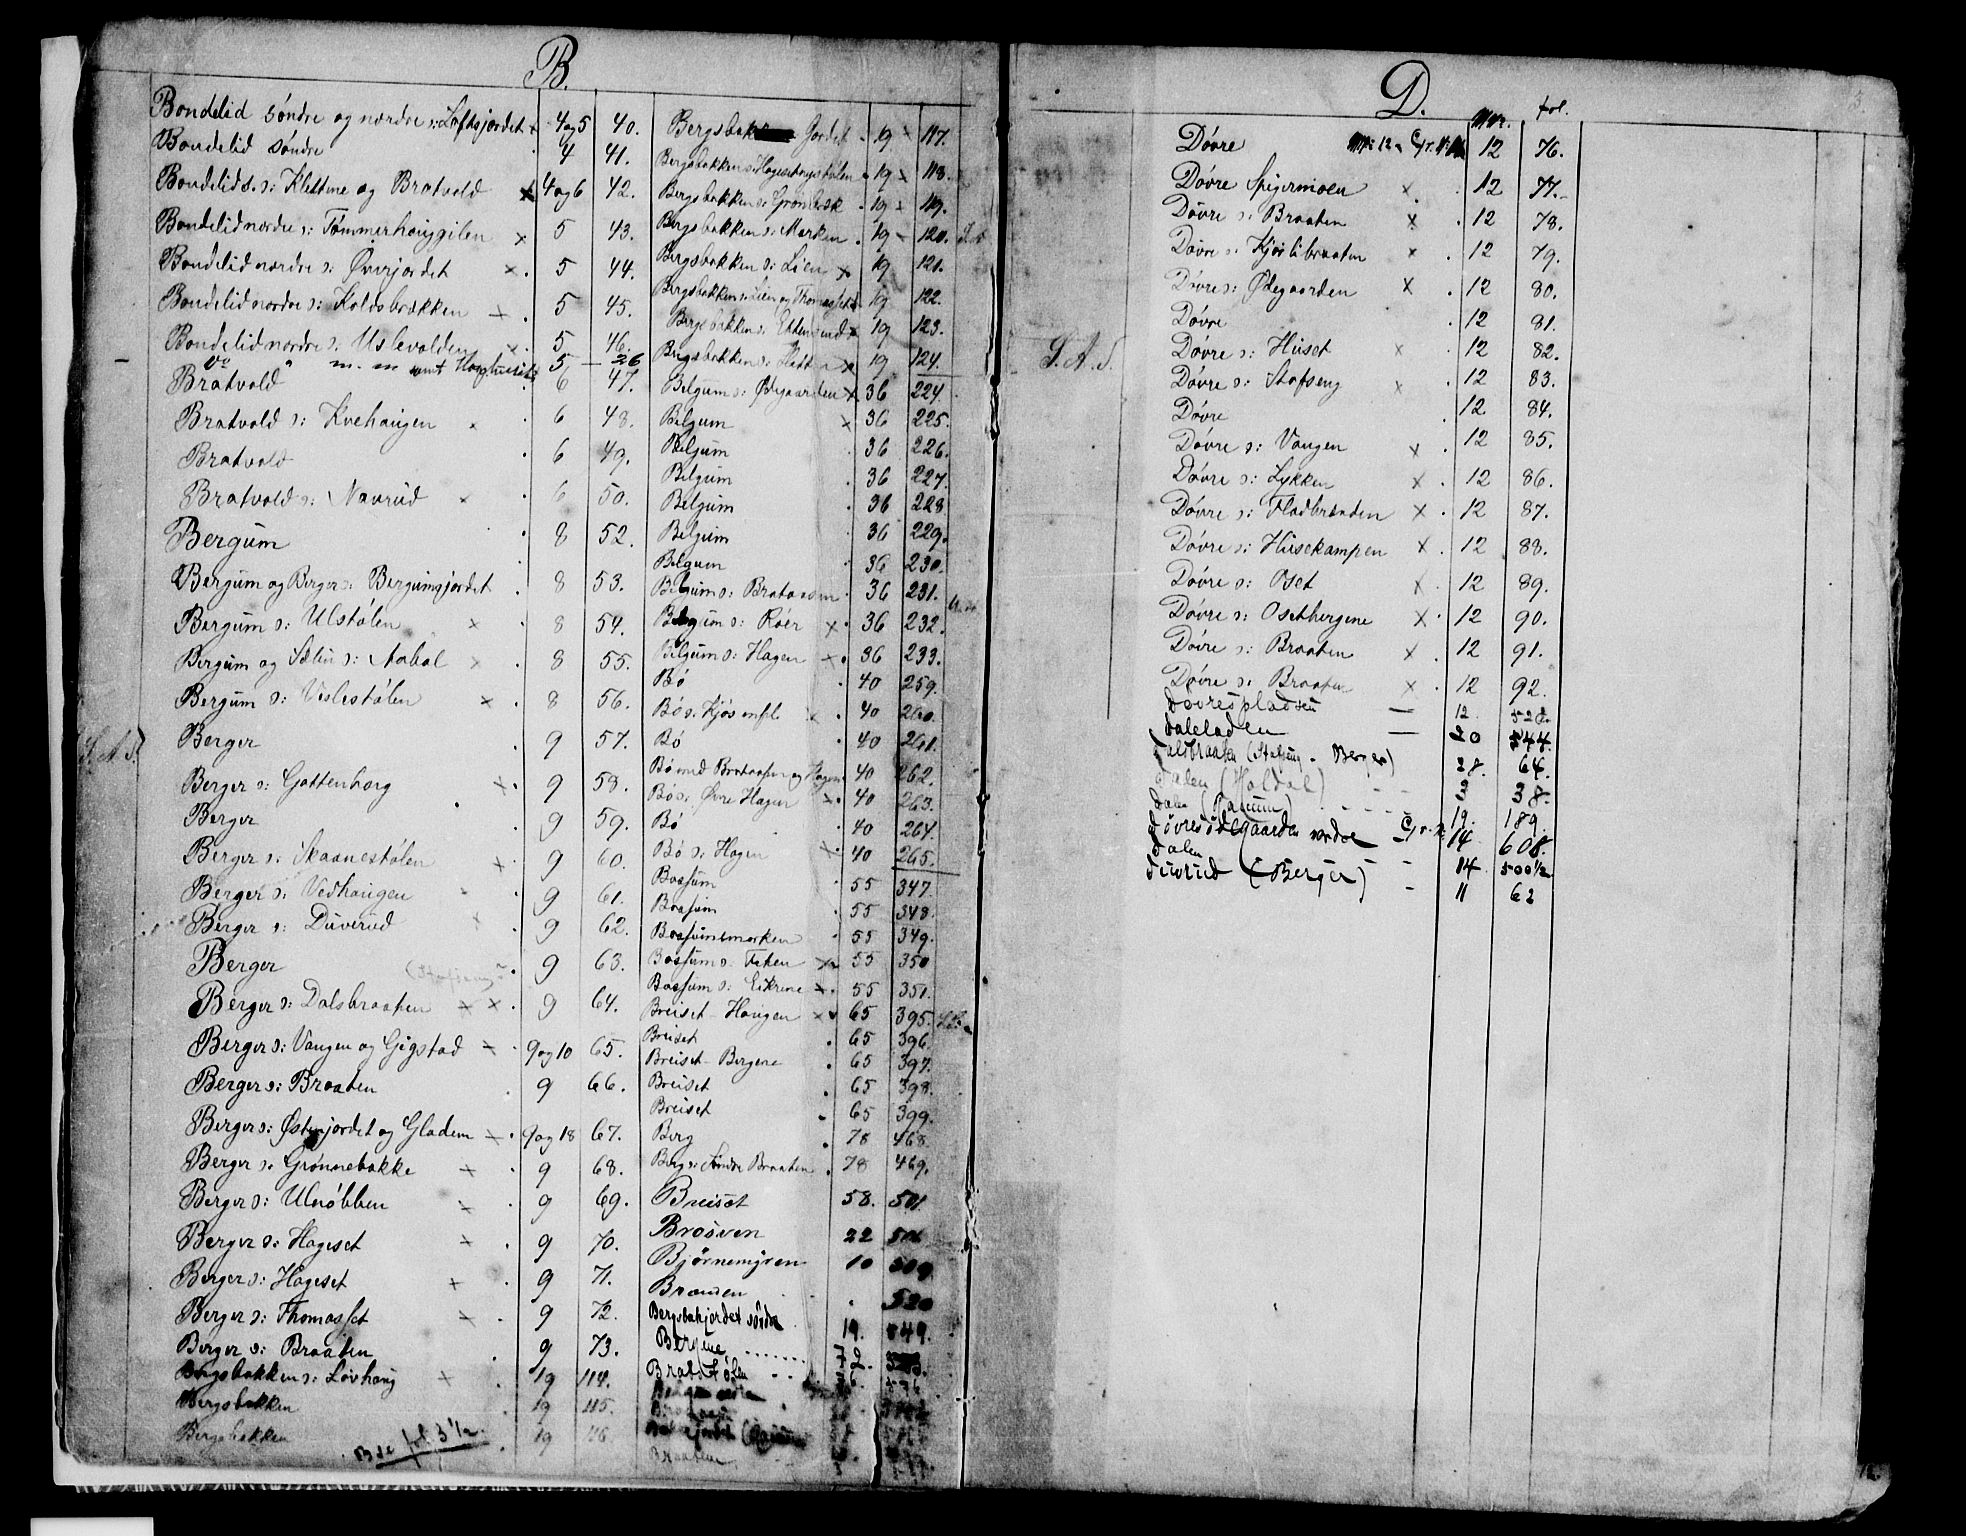 B.
Bondelid söndre og nordre s: Loftsjordet 4 og 5 40.
Bondelid söndre 4 41.
Bondelid s: Klettene og Bratvold x 4 og 6 42.
Bondelid nordre s: Tømmerhouggilen x 5 43.
Bondelid nordre s: Øvrejordet x. 5 44.
Bondelid nordre s: Koldsbrækken x. 5 45.
Bondelid nordre s: Uslevolden x. 5 46.
Do " m. m samt 5 26
Bratvold 6 47.
Bratvold s: Kvehougen x 6 48.
Bratvold 6 49.
Bratvold s: Navrud x 6 50.
Bergum 8 52.
Bergum og Berger s: Bergumsjordet 8 53.
Bergum s: Ulstölen x 8 54.
Bergum og Sælin s: Aabol x 8 55.
Bergum s: Veslestölen x 8 56.
S. A. S.
Berger 9 57.
Berger s: Gottenborg x 9 58.
Berger 9 59.
Berger s: Skaanestölen x 9 60.
Berger s: Vedhougen 9 61.
Berger s: Duverud x 9 62.
Berger (Stafseng) 9 63.
Berger s: Dalsbraaten x x. 9 64.
Berger s: Vangen og Gigstad x 9 og 10 65.
Berger s: Braaten 9 66.
Berger s: Østerjordet og Gladem x. 9 og 18 67.
Berger s: Grönnebakke x 9 68.
Berger s: Ulnöbben x 9 69.
Berger s: Hageset x 9 70.
Berger s: Hageset x 9 71.
Berger s: Thomasset x 9 72.
Berger s: Braaten 9 73.
Bergsbakken s: Lövhoug x 19 114.
Bergsbakken 19 115.
Bergsbakken 19 116.
B se fol 3 1/2.
Jordet 19 x 117.
Bergsbakken s: 19 x 118.
Bergsbakken s: Grönlesk 19 x 119.
Bergsbakken s: Marken 19 x 120.
Bergsbakken s: Lien x 19 121.
Bergsbakken s: Lien og Thomasset 19 122.
Bergsbakken s: x 19 123.
Bergsbakken s: x 19 124.
Belgum s: Ødegaarden x 36 224.
Belgum x 36 225.
Belgum 36 226.
Belgum 36 227.
Belgum 36 228
Belgum 36 229.
Belgum 36 230.
Belgum s: Brataasen 36 231.
Belgum s: Roer x 36 232.
Belgum s: Hagen x. 36 233.
Bö 40 259.
Bö s: Kjös x 40 260.
Bö 40 261.
Bö med Brataasen og Hagen 40 262.
Bö s: Øvre Hagen x. 40 263.
Bö 40 264.
Bö s: Hagen x. 40 265.
Bossum 55 347.
Bossum 55 348.
Bossumsmarken 55 349.
Bossum s: x 55 350
Bossum s: Eikrene x. 55 351.
Breiset Hougen x 65 395.
Breiset 65 396.
Breiset Bergene 65 397.
Breiset 65 398.
Breiset 65 399.
Berg 78 468.
Berg s: Söndre Braaten 78 469.
Breiset 58. 501.
Brosven 22
Bjørnemyren 10 509
Brænden 520
Bergsbakjordet söndre 19.
Bergene ....... 72.
Bratstölen
Braatene

D.
Mnr. fol.
Dövre 12 76.
Dövre Spigermoen x 12 77.
Dövre s: Braaten x 12 78.
Dövre s: Kjörlibraaten x 12 79.
Dövre s: Ødegaarden x 12 80.
Dövre 12 81.
S. A. S.
Dövre s: Huset x 12 82.
Dövre s: Stafseng x 12 83.
Dövre 12 84.
Dövre s: Vangen x 12 85.
Dövre s: Lykken x 12 86.
Dövre s: Fladbrænden x 12 87.
Dövre s: Husekampen x 12 88.
Dövre s: Oset x 12 89.
Dövre s: Osetbergene x 12 90.
Dövre s: Braaten x 12 91.
Dövre s: Braaten x 12 92.
Dövrespladsen — 12. 528.
Daleladen — 20 544.
Dalsbraaten (Stafseng - Berger) 28. 64.
Dalen (Holdal) - - 3 38.
Dalen (Ranum) - - - - 19. 189.
Dövresödegaarden nordre 14 608.
Dalen 14 500 1/2
Duvrud (Berger) - 11 62